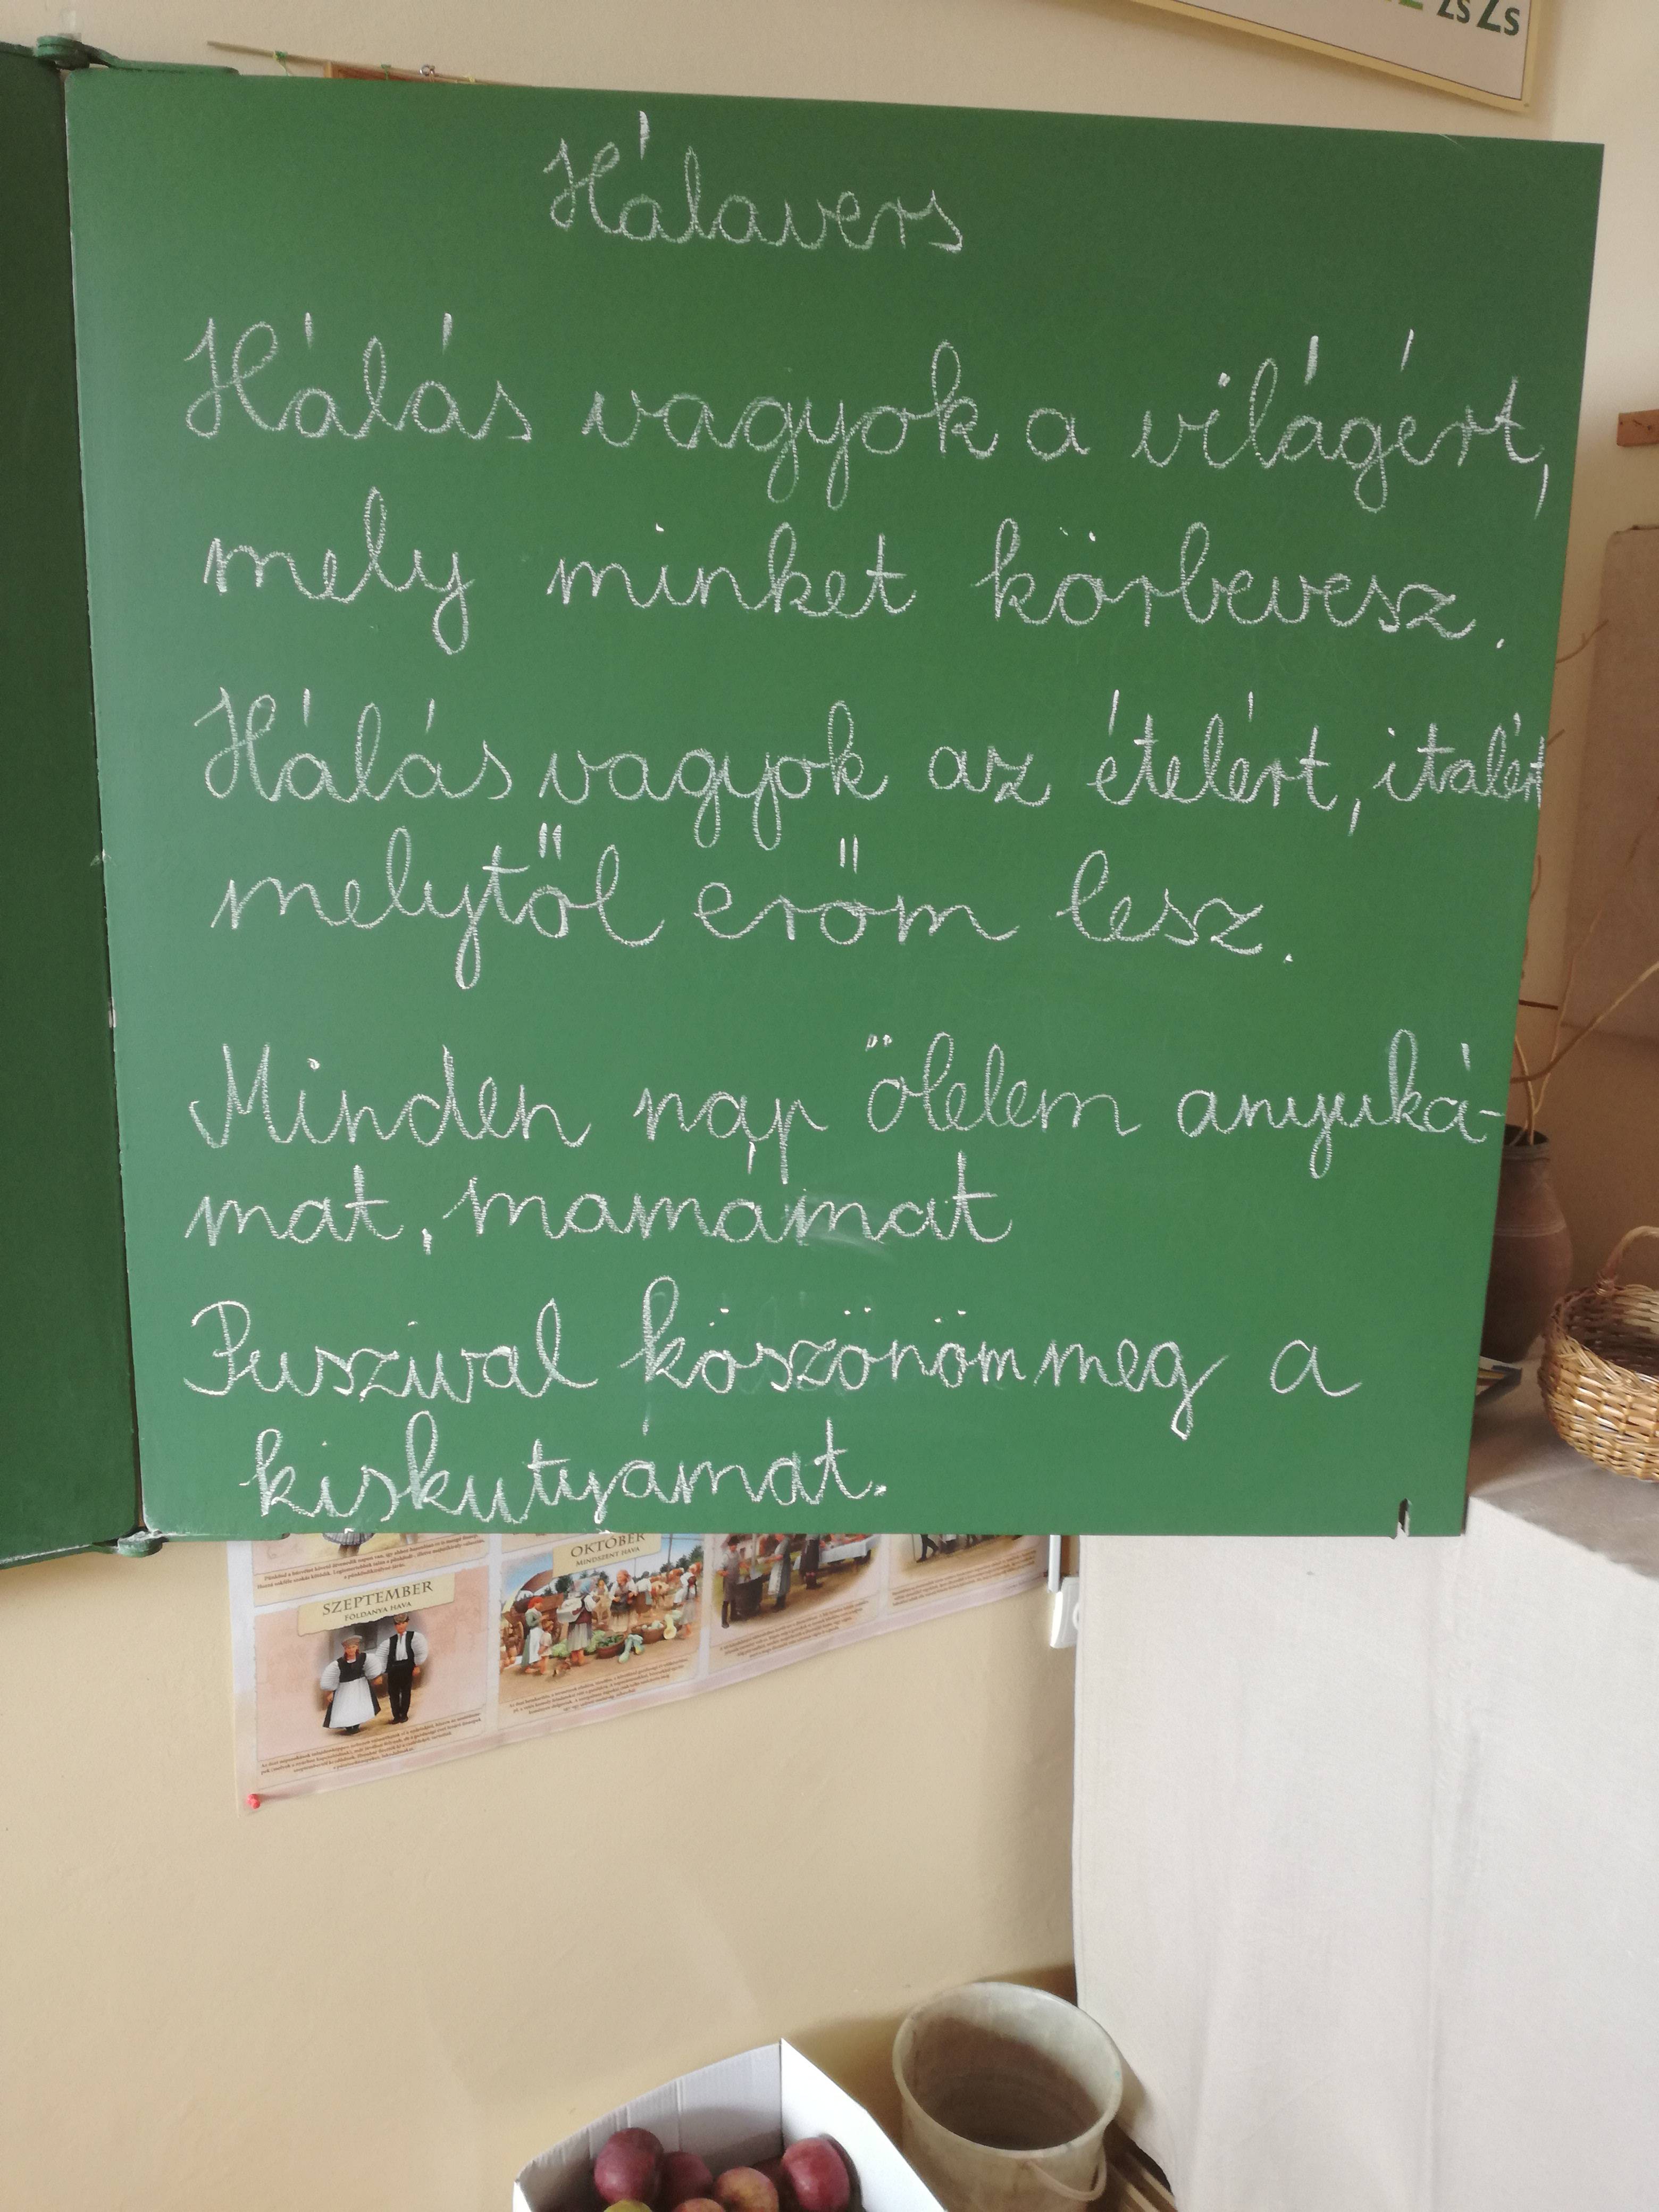 Zs Zs
Hálavers
Hálás vagyok a világért,
mely minket körbevesz.
Hálás vagyok az ételért, italért
melytől erőm lesz.
Minden nap ölelem anyuká-
mat, mamámat
Puszival köszönöm meg a
kiskutyámat.
OKTÓBER
MINDSZENT HAVA
SZEPTEMBER
FÖLDANYA HAVA